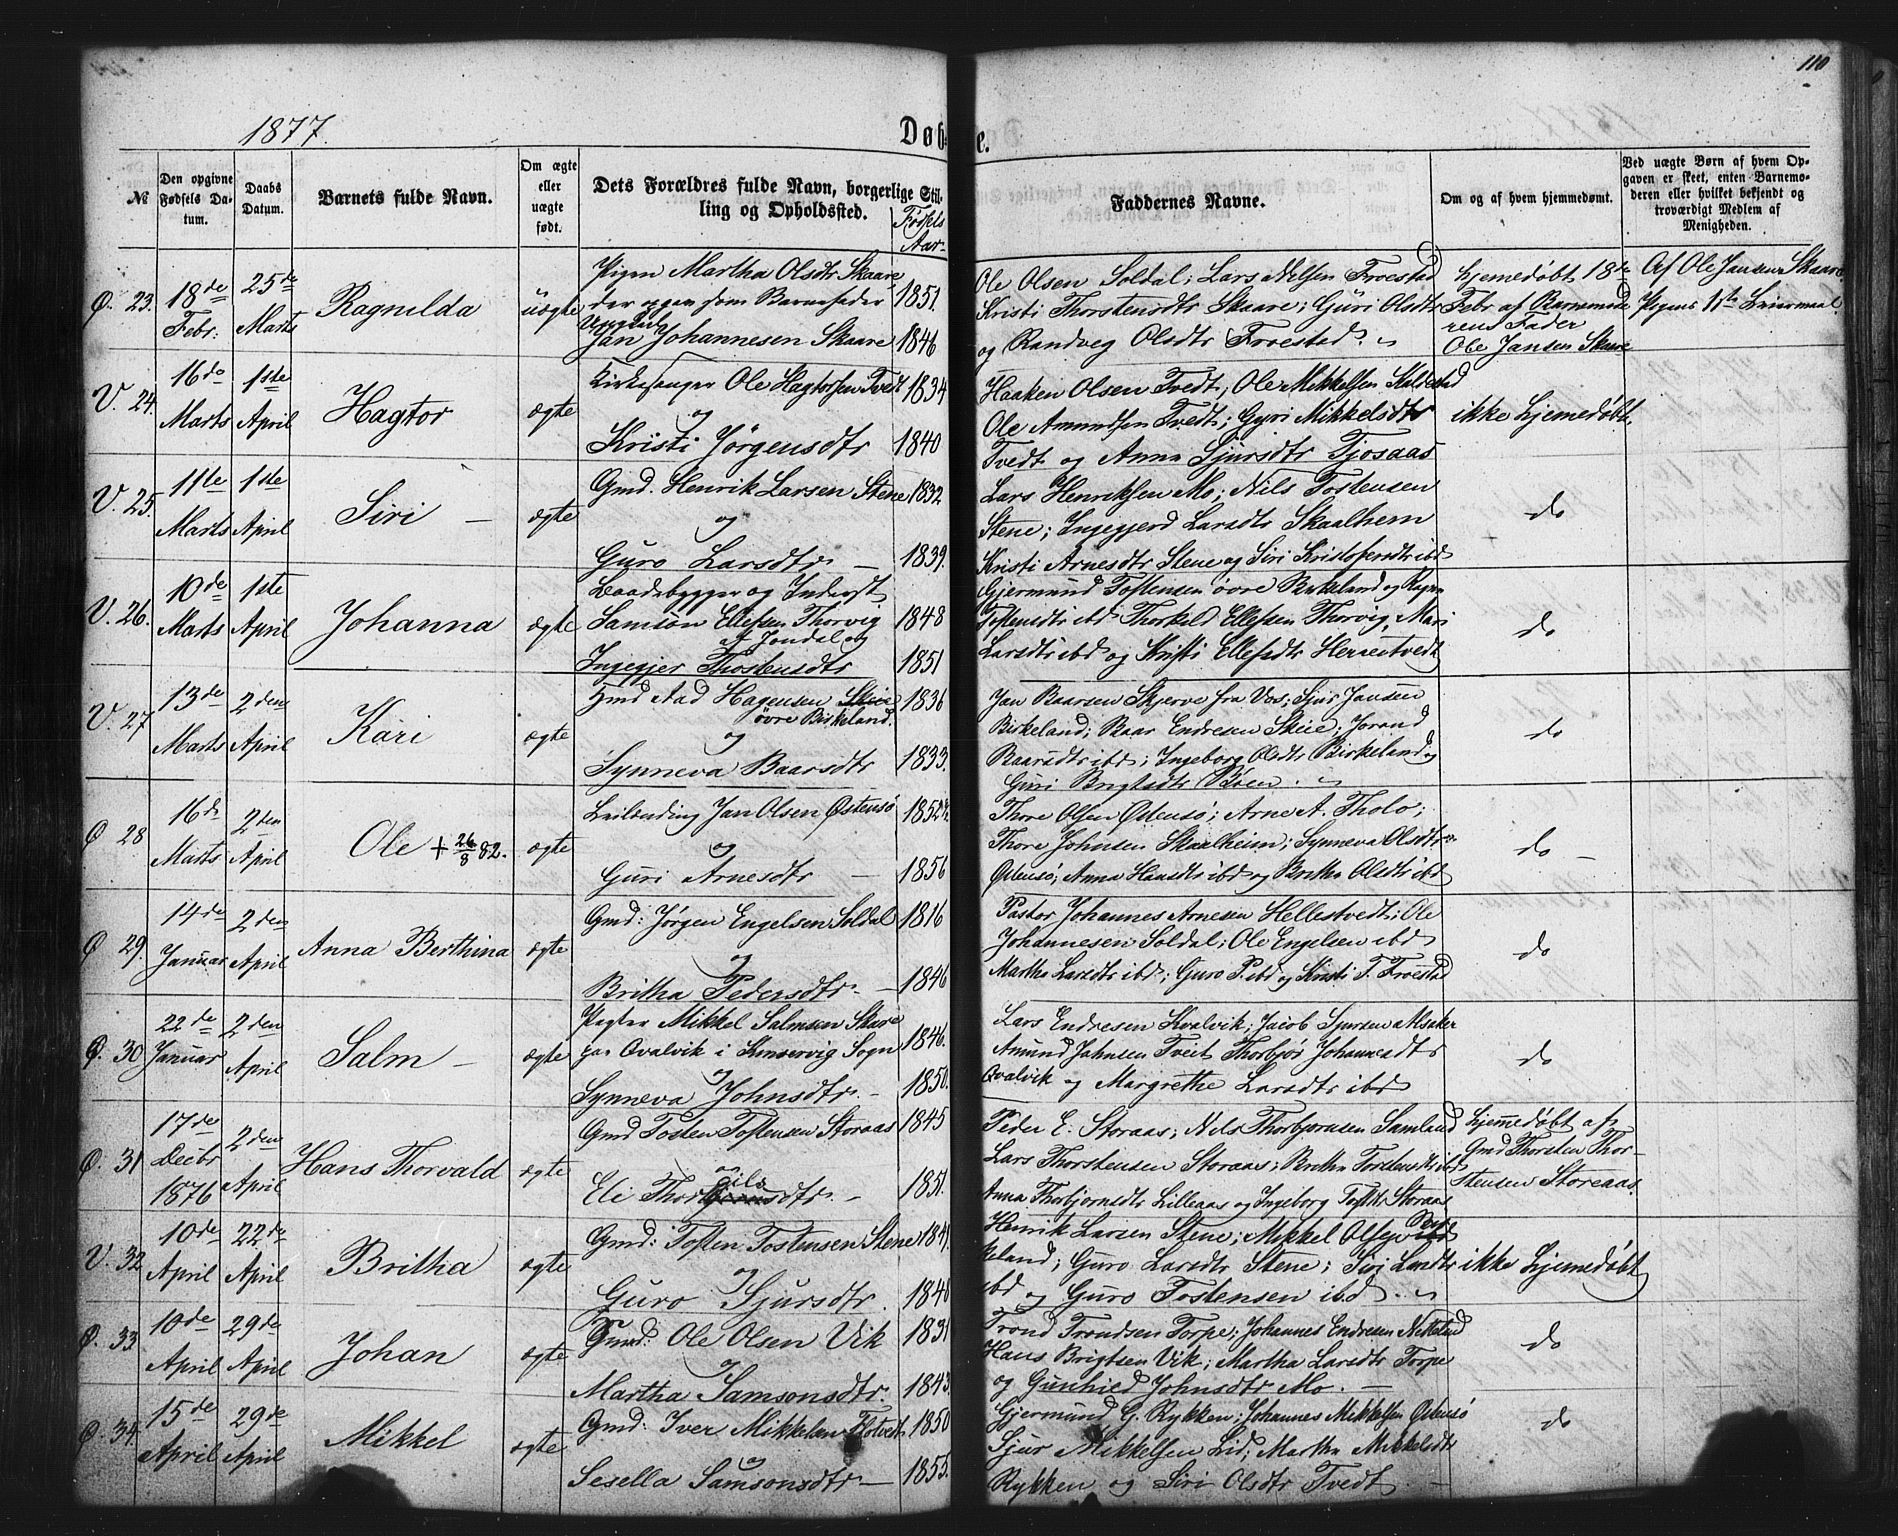 110
1877.
Døb-
e.
№
Den opgivne Fødsels Datum.
Daabs Datum.
Barnets fulde Navn.
Om ægte eller uægte født.
Dets Forældres fulde Navn, borgerlige Stilling og Opholdssted.
Fødsels Aar
Faddernes Navne.
Om og af hvem hjemmedømt.
Ved uægte Børn af hvem Opgaven er skeet, enten Barnemoderen eller hvilket bekjendt og troværdigt Medlem af Menigheden.
Ø. 23. 18de Febr. 25de Marts Ragnilda uægte
Pigen Martha Olsdtr Skaare 1851.
der opgav som Barnefader
Ungkarl
Jan Johannesen Skaare 1846
Ole Olsen Soldal; Lars Nelsen Froestad
Kristi Thorstensdtr Skaare; Guri Olsdtr
og Randveg Olsdtr Froestad.
hjemedøbt 18de
Febr af Barnemode
rens Fader
Ole Jansen Skaare
Af Ole Jansen Skaare.
Pigens 1ste Leiermaal.
V. 24. 16de Marts 1ste April Hagtor ægte
Kirkesanger Ole Hagtorsen Tvedt 1834
og
Kristi Jørgensdtr 1840
Haaken Olsen Tvedt; Ole Mikkelsen
Ole Amundsen Tvedt; Gyri Mikkelsdtr
Tvedt og Anna Sjursdtr Tjosaas
ikke hjemedøbt.
V. 25. 11te Marts 1ste April Siri – ægte
Gmd. Henrik Larsen Stene 1832
og
Guro Larsdtr – 1839.
Lars Henriksen Mo; Nils Tostensen
Stene; Ingegjerd Larsdtr Skaalhem
Kristi Arnesdtr Stene og Siri Kristofersdtr ibd
do
V. 26. 10de Marts 1ste April Johanna ægte
Baadebygger og Inderst
Samson Ellefsen Thorvig 1848
af Jondal og
Ingegjer Thostensdtr 1851
Gjermund Tostensen øvre Birkeland og
Tostensdtr ibd Thorkeld Ellefsen Thorvig, Mari
Larsdtr ibd og Kristi Ellefsdtr Herrestvedt
do
V. 27 13de Marts 2den April Kari ægte
Hmd Aad Hagensen Skeie 1836
øvre Birkeland.
og
Synneva Baarsdtr 1833.
Jan Baarsen Skjerve fra Vos; Sjur Jansen
Birkeland; Baar Endresen Skeie; Jorand
Baarsdtr ibd; Ingeborg Olsdtr Birkeland og
Guri Brigtsdtr Bøen.
do
Ø 28 16de Marts 2den April Ole + 26/8 82. ægte
Leilending Jan Olsen Østensø 1852
og
Guri Arnesdtr – 1856
Thore Olsen Østensø; Arne A. Tholo;
Thore Johnsen Skaalheim; Synneva Olsdtr
Østensø; Anna Hansdtr ibd og Britha Olsdtr ibd
do –
Ø 29. 14de Januar 2den April Anna Berthina ægte
Gmd: Jørgen Engelsen Soldal 1816
og
Britha Pedersdtr. – 1846
Pastor Johannes Arnesen Hellestvedt; Ole
Johannesen Soldal; Ole Engelsen ibd
Martha Larsdtr ibd; Guro P. ibd og Kristi T. Froestad
do
Ø. 30 22de Januar 2den April Salm – ægte
Pagter Mikkel Salmsen Skare 1846.
paa Qvalvik i Kinservig Sogn
og
Synneva Johnsdtr. – 1850.
Lars Endresen Kvalvik; Jacob Sjursen Alsaker
Amund Jahnsen Tveit Thorbjør Johannesdtr
Qvalvik og Margrethe Larsdtr ibd
do
Ø. 31 17de Decbr 1876 2den April Hans Thorvald ægte
Gmd Tosten Tostensen Storaas 1845
og
Eli Thorgilsdtr. – 1851.
Peder E. Storaas; Nils Thorbjørnsen Samland
Lars Thorstensen Storaas; Britha Torstensdtr ibd
Anna Thorbjornsdtr Lilleaas og Ingeborg Tostdtr Storaas
hjemedøbt af
Gmd Thorsten Thor-
stensen Storaas.
V. 32 10de April 22de April Britha ægte
Gmd: Tosten Tostensen Stene 1841.
og
Guro Sjursdtr. 1840
Henrik Larsen Stene; Mikkel Olsen Bir
keland; Guro Larsdtr Stene; Siri Larsdtr
ibd og Guro Tostensen ibd.
ikke hjemedøbt
Ø. 33 10de April 29de April Johan ægte
Gmd: Ole Olsen Vik 1831
og
Martha Samsonsdtr 1843.
Trond Trondsen Torpe; Johannes Endresen Netteland
Hans Brigtsen Vik; Martha Larsdtr Torpe
og Gunhild Johnsdtr Mo. –
do
Ø. 34. 15de April 29de April Mikkel ægte
Gmd: Iver Mikkelsen Flotvedt 1850
og
Sesella Samsonsdtr – 1855.
Gjermund G. Rykken; Johannes Mikkelsen Østensø
Sjur Mikkelsen Lid; Martha Mikkelsdtr
Rykken og Siri Olsdtr Tvedt. –
do